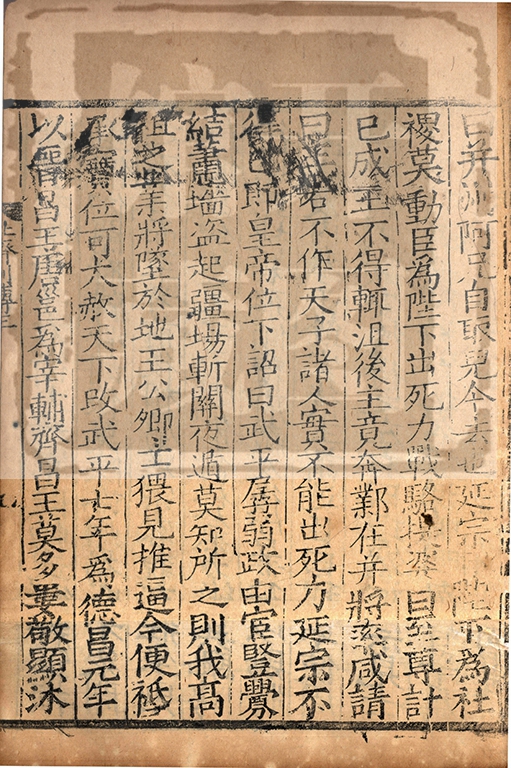 曰并州阿兄自取兒今去也延宗曰陛下為社
稷莫動臣為陛下出死力戰駱提婆曰至尊計
已成王不得輒沮後主竟奔鄴在并將率咸請
曰王若不作天子諸人實不能出死力延宗不
得已即皇帝位下詔曰武平孱弱政由宦豎釁
結蕭墻盜起疆場斬關夜遁莫知所之則我高
祖之業將墜於地王公卿士猥見推逼今便祗
承寶位可大赦天下改武平七年為德昌元年
以晉昌王唐邕為宰輔齊昌王莫多婁敬顯沐